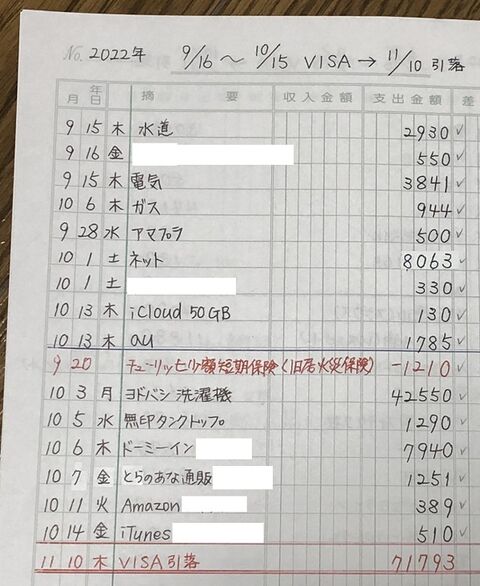 No. 2022年 9/16 ～ 10/15 VISA → 11/10 引落
年 月 日 摘 要 収入金額 支出金額 差
9 15 木 水道 2930 ✓
9 16 金 550 ✓
9 15 木 電気 3841 ✓
10 6 木 ガス 944 ✓
9 28 水 アマプラ 500 ✓
10 1 土 ネット 8063 ✓
10 1 土 330 ✓
10 13 木 iCloud 50GB 130 ✓
10 13 木 au 1785 ✓
9 20 チューリッヒ少額短期保険(旧居火災保険) -1210 ✓
10 3 月 ヨドバシ 洗濯機 42550 ✓
10 5 水 無印タンクトップ 1290 ✓
10 6 木 ドーミーイン 7940 ✓
10 7 金 とらのあな通販 1251 ✓
10 11 火 Amazon 389 ✓
10 14 金 iTunes 510 ✓
11 10 木 VISA 引落 71793